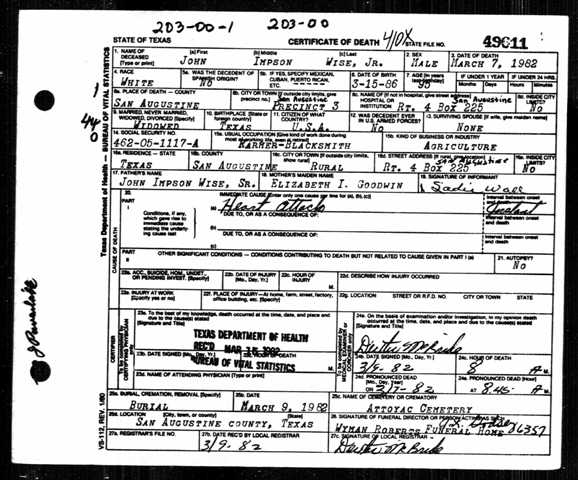 2D3-00-1 2D3-00
STATE OF TEXAS CERTIFICATE OF DEATH 410X STATE FILE NO. 49611
1. NAME OF DECEASED (Type or print) (a) First (b) Middle (c) Last 2. SEX 3. DATE OF DEATH
JOHN IMPSON WISE, JR. MALE MARCH 7, 1982
4. RACE 5a. WAS THE DECEDENT OF SPANISH ORIGIN? 5b. IF YES, SPECIFY MEXICAN, CUBAN, PUERTO RICAN, ETC. 6. DATE OF BIRTH 7. AGE IF UNDER 1 YEAR IF UNDER 24 HRS.
WHITE NO 3-15-86
8a. PLACE OF DEATH — COUNTY 8b. CITY OR TOWN (If outside city limits, give precinct no.) 8c. NAME OF (If not in hospital, give street address) HOSPITAL OR INSTITUTION 8d. INSIDE CITY LIMITS?
SAN AUGUSTINE San Augustine PRECINCT 3 San Augustine RT. 4 BOX 225 NO
9. MARRIED, NEVER MARRIED, WIDOWED, DIVORCED (Specify) 10. BIRTHPLACE (State or foreign country) 11. CITIZEN OF WHAT COUNTRY? 12. WAS DECEDENT EVER IN U.S. ARMED FORCES? 13. SURVIVING SPOUSE (If wife, give maiden name)
WIDOWED TEXAS U.S.A. NO NONE
14. SOCIAL SECURITY NO. 15a. USUAL OCCUPATION (Give kind of work done during most of working life, even if retired) 15b. KIND OF BUSINESS OR INDUSTRY
462-05-1117-A FARMER-BLACKSMITH AGRICULTURE
16a. RESIDENCE — STATE 16b. COUNTY 16c. CITY OR TOWN (If outside city limits, show rural) 16d. STREET ADDRESS 16e. INSIDE CITY LIMITS?
TEXAS SAN AUGUSTINE RURAL San Augustine RT. 4 BOX 225 NO
17. FATHER'S NAME 17. MOTHER'S MAIDEN NAME 18. SIGNATURE OF INFORMANT
JOHN IMPSON WISE, SR. ELIZABETH I. GOODWIN Sadie Wall
20. PART I IMMEDIATE CAUSE (Enter only one cause per line for (a), (b), (c)) Interval between onset and death
(a) Heart Attack Instant
Conditions, if any, which gave rise to immediate cause stating the underlying cause last
DUE TO, OR AS A CONSEQUENCE OF:
DUE TO, OR AS A CONSEQUENCE OF: Interval between onset and death
PART II OTHER SIGNIFICANT CONDITIONS — CONDITIONS CONTRIBUTING TO DEATH BUT NOT RELATED TO CAUSE GIVEN IN PART I (a) 21. AUTOPSY?
NO
22a. ACC., SUICIDE, HOM., UNDET., OR PENDING INVEST. (Specify) 22b. DATE OF INJURY (Mo., Day, Yr.) 22c. HOUR OF INJURY M. 22d. DESCRIBE HOW INJURY OCCURRED
22e. INJURY AT WORK (Specify yes or no) 22f. PLACE OF INJURY—At home, farm, street, factory, office building, etc. (Specify) 22g. LOCATION STREET OR R.F.D. NO. CITY OR TOWN STATE
23a. To the best of my knowledge, death occurred at the time, date, and place and due to the cause(s) stated (Signature and Title)
24a. On the basis of examination and/or investigation, in my opinion death occurred at the time, date, and place and due to the cause(s) stated. (Signature and Title)
TEXAS DEPARTMENT OF HEALTH
REC'D MAR 1982
BUREAU OF VITAL STATISTICS
23b. DATE SIGNED (Mo., Day, Yr.) 24b. DATE SIGNED (Mo., Day, Yr.) 24c. HOUR OF DEATH
3/9-82 8 A M.
23d. NAME OF ATTENDING PHYSICIAN (Type or print) 24d. PRONOUNCED DEAD (Mo., Day, Year) 24e. PRONOUNCED DEAD (Hour)
ON 3/7-82 AT 8:45 A M.
25a. BURIAL, CREMATION, REMOVAL (Specify) 25b. DATE 25c. NAME OF CEMETERY OR CREMATORY
BURIAL MARCH 9, 1982 ATTOYAC CEMETERY
25d. LOCATION (City, town, or county) (State) 26. SIGNATURE OF FUNERAL DIRECTOR OR PERSON ACTING AS SUCH
SAN AUGUSTINE COUNTY, TEXAS WYMAN ROBERTS FUNERAL HOME 6357
27a. REGISTRAR'S FILE NO. 27b. DATE REC'D BY LOCAL REGISTRAR 27c. SIGNATURE OF LOCAL REGISTRAR
3/9-82
Texas Department of Health — BUREAU OF VITAL STATISTICS
CAUSE OF DEATH
CERTIFIER
VS-112, REV. 1/80